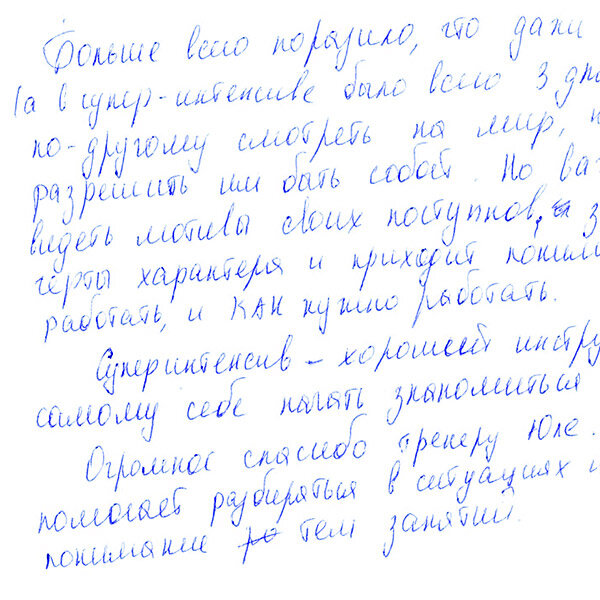 Больше всего поразило, что даже
(а в супер-интенсиве было всего 3 дн
по-другому смотреть на мир,
разрешить им быть собой. Но ва
видеть мотивы своих поступков,
черты характера и приходит поним
работать, и КАК нужно работать.
Суперинтенсив - хороший инстру
самому себе начать знакомиться
Огромное спасибо тренеру Юле.
помогает разбираться в ситуациях
понимание тем занятий.